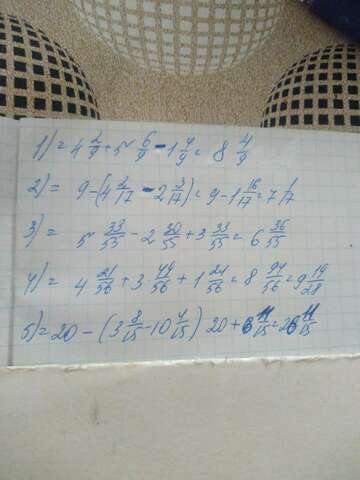 1) = 4 2/9 + 5 6/9 - 1 4/9 = 8 4/9
2) = 9 - (4 2/17 - 2 3/17) = 9 - 1 16/17 = 7 1/17
3) = 5 33/55 - 2 30/55 + 3 33/55 = 6 36/55
4) = 4 21/56 + 3 49/56 + 1 24/56 = 8 94/56 = 9 19/28
5) = 20 - (3 8/15 - 10 4/15) 20 + 6 11/15 = 26 11/15